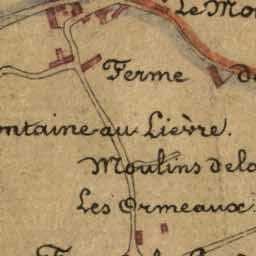 Le Mo
Ferme de
ontaine au Lièvre.
Moulins de la
Les Ormeaux.